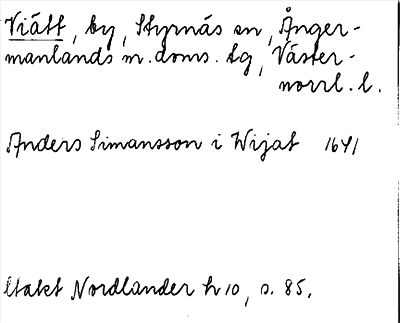 Viätt, by, Styrnäs sn, Ånger-
manlands m. doms. tg, Väster-
norrl. l.
Anders Simansson i Wijat 1641
Utakt Nordlander h 10, s. 85.